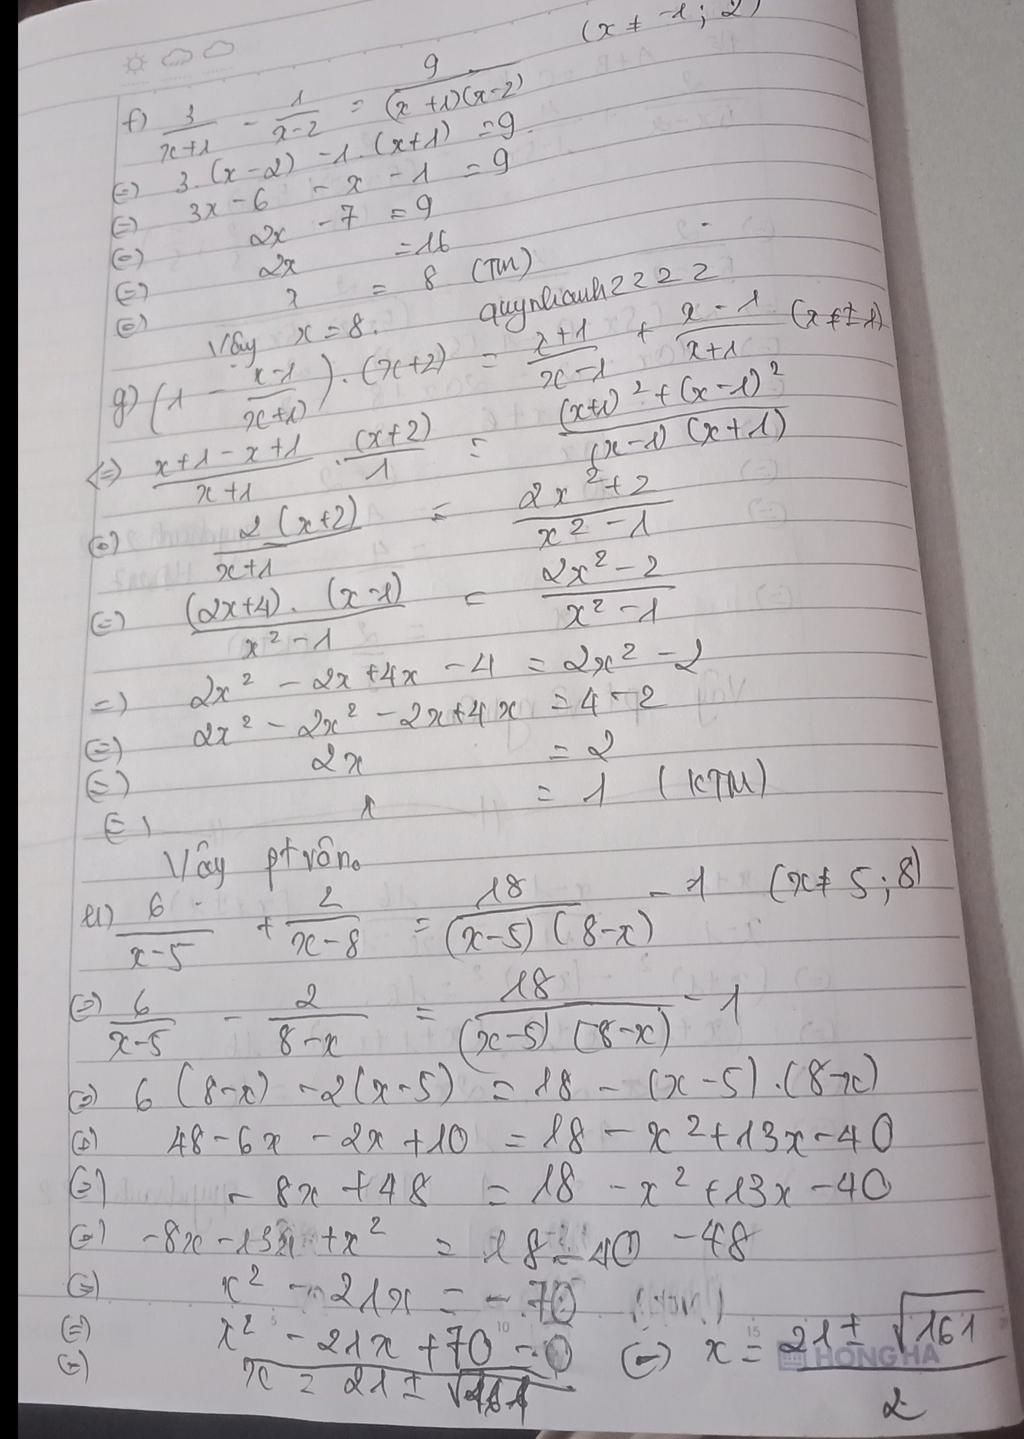 (x ≠ -1; 2)
f) 3/(x+1) - 1/(x-2) = 9/((x+1)(x-2))
(=) 3.(x-2) - 1.(x+1) = 9
(=) 3x - 6 - x - 1 = 9
(=) 2x - 7 = 9
(=) 2x = 16
(=) x = 8 (TM)
Vây x = 8. quynhanh2222
g) (1 - (x-1)/(x+1)).(x+2) = (x+1)/(x-1) + (x-1)/(x+1) (x ≠ ±1)
<=> (x+1-x+1)/(x+1) . (x+2)/1 = ((x+1)² + (x-1)²)/((x-1)(x+1))
(=) 2(x+2)/(x+1) = (2x²+2)/(x²-1)
(=) (2x+4).(x-1)/(x²-1) = (2x²-2)/(x²-1)
=) 2x² - 2x + 4x - 4 = 2x² - 2
(=) 2x² - 2x² - 2x + 4x = 4 - 2
(=) 2x = 2
(=) x = 1 (KTM)
Vây pt vôn.
6/(x-5) + 2/(x-8) = 18/((x-5)(8-x)) - 1 (x ≠ 5; 8)
(=) 6/(x-5) - 2/(8-x) = 18/((x-5)(8-x)) - 1
(=) 6(8-x) - 2(x-5) = 18 - (x-5).(8-x)
(=) 48 - 6x - 2x + 10 = 18 - x² + 13x - 40
(=) - 8x + 48 = 18 - x² + 13x - 40
(=) -8x - 13x + x² = 18 - 40 - 48
(=) x² - 21x = - 70
(=) x² - 21x + 70 = 0 (=) x = (21 ± √161)/2
(=) x = 21 ±
HONG HA